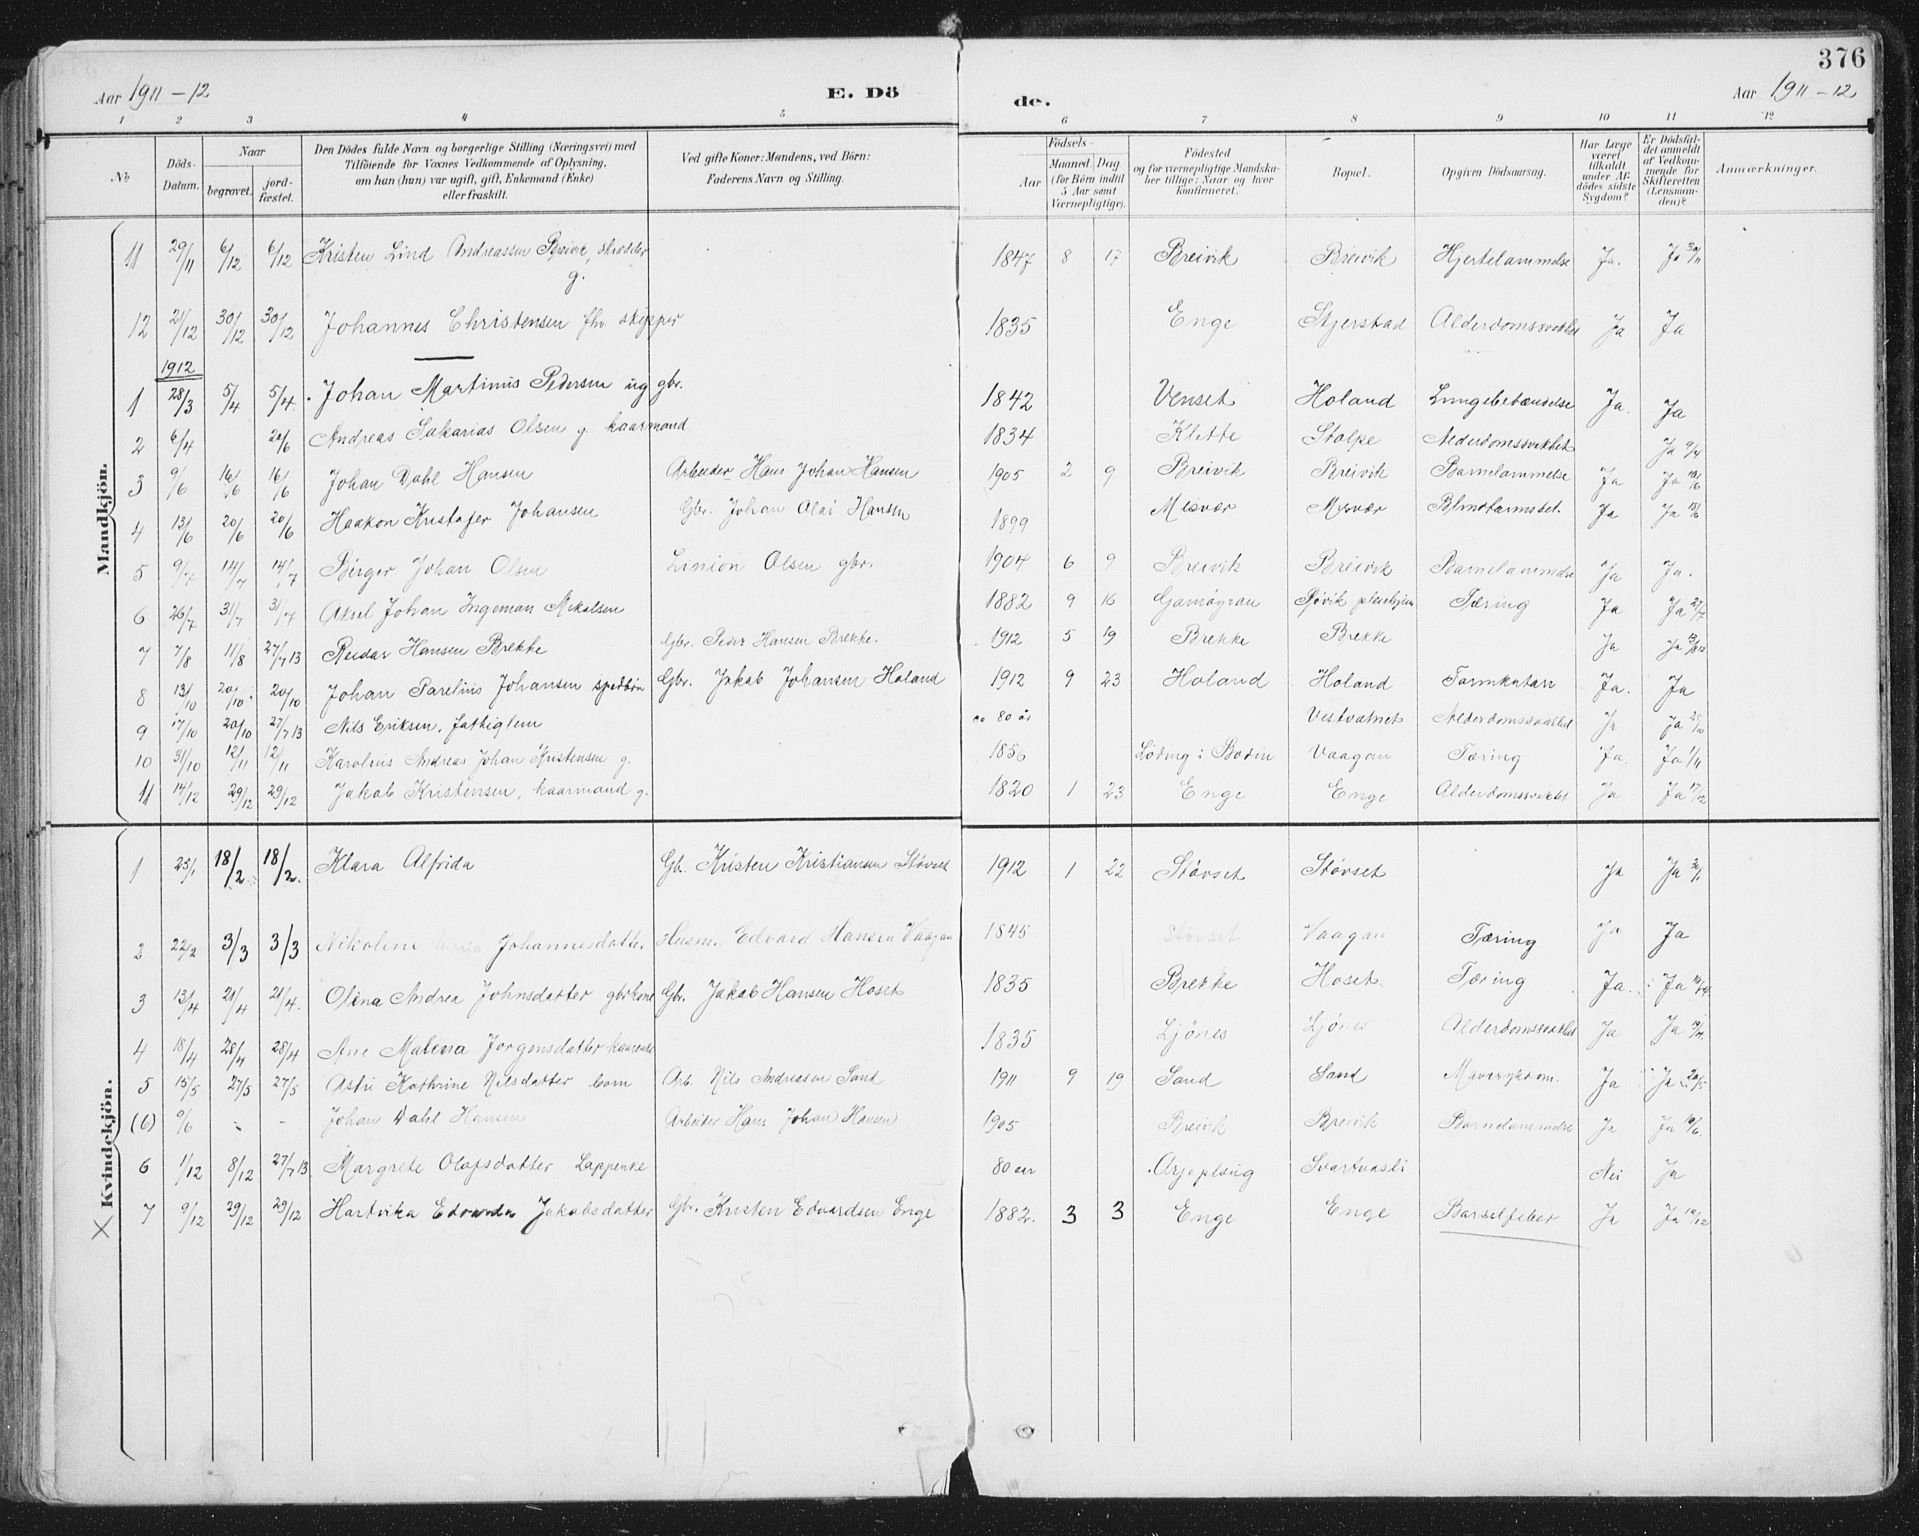 376
Aar 1911-12 E. Dö de. Aar 1911-12
1 2 3 4 5 6 7 8 9 10 11 12
No
Döds-Datum.
Naar
begravet.
jord-fæstet.
Den Dödes fulde Navn og borgerlige Stilling (Næringsvei) med
Tilföiende for Voxnes Vedkommende af Oplysning,
om han (hun) var ugift, gift, Enkemand (Enke)
eller fraskilt.
Ved gifte Koner: Mandens, ved Börn:
Faderens Navn og Stilling.
Födsels-
Aar
Maaned Dag
(for Börn indtil
5 Aar samt
Værnepligtige).
Födested
og for værnepligtige Mandska-
ber tillige: Naar og hvor
konfirmeret.
Bopæl.
Opgiven Dödsaarsag.
Har Læge
været
tilkaldt
under Af-
dödes sidste
Sygdom?
Er Dödsfal-
det anmeldt
af Vedkom-
mende for
Skifteretten
(Lensman-
den)?
Anmærkninger.
Mandkjön.
11 29/11 6/12 6/12 Kristen Lind Andreassen Breivik, skrædder g. 1847 8 17 Breivik Breivik Hjertelammelse Ja. Ja 30/11
12 21/12 30/12 30/12 Johannes Christensen fhv skipper 1835 Enge Stjerstad Alderdomssvækket Ja Ja
1912
1 28/3 5/4 5/4 Johan Martinus Pedersen ug gbr. 1842 Venset Holand Lungebetændelse Ja. Ja
2 6/4 20/6 Andreas Sakarias Olsen g. kaarmand 1834 Klette Stolpe Alderdomssvækket Ja 9/4
3 9/6 16/6 16/6 Johan Dahl Hansen Arbeider Hans Johan Hansen 1905 2 9 Breivik Breivik Barnelammelse Ja Ja
4 13/6 20/6 20/6 Haakon Kristofer Johansen Gbr. Johan Olai Hansen 1899 Misvær Misvær Ja Ja
5 9/7 14/7 14/7 Birger Johan Olsen Linion Olsen gbr. 1904 6 9 Breivik Breivik Barnelammelse Ja Ja.
6 26/7 31/7 31/7 Aksel Johan Ingeman Mikalsen 1882 9 16 Gamøyran Tæring Ja Ja
7 7/8 11/8 27/7 13 Reidar Hansen Brekke Gbr. Peder Hansen Brekke. 1912 5 19 Brekke Brekke Ja Ja
8 13/10 20/10 20/10 Johan Parelius Johansen spedbøn Gbr. Jakob Johansen Holand 1912 9 23 Holand Holand Tarmkatarr Ja. Ja
9 17/10 20/10 27/7 13 Nils Eriksen. fattiglem ca 80 år Vestvatnet Alderdomssvækket Ja Ja
10 31/10 12/11 12/11 Karolius Andreas Johan Kristensen g. 1856 Løding i Bodin Vaagan Tæring Ja. Ja 1/11
11 14/12 29/12 29/12 Jakob Kristensen, kaarmand g. 1820 1 23 Enge Enge Alderdomssvækket Ja Ja 17/12
Kvindekjön.
1 25/1 18/2 18/2. Klara Alfrida Gb. Kristen Kristiansen Støvset 1912 1 22 Støvset Støvset Ja Ja
2 22/2 3/3 3/3 Nikoline Johannesdatter Husm. Edvard Hansen Vaagan 1845 Støvset Vaagan Tæring Ja Ja
3 13/4 21/4 21/4. Olina Andrea Johnsdatter gbrkone Gbr. Jakob Hansen Hoset 1835 Brekke Hoset Tæring Ja. Ja
4 18/4 28/4 28/4 Ane Malena Jørgensdatter kaarenke 1835 Ljönes Ljönes Alderdomssvækket Ja Ja
5 15/5 27/5 27/5 Astri Kathrine Nilsdatter barn Arb. Nils Andreasen Sand 1911 9 19 Sand Sand Mavesykdom. Ja Ja 20/5
(6) 9/6 - - Johan Dahl Hansen Arbeider Hans Johan Hansen 1905 Breivik Breivik Barnelammelse Ja Ja
6 1/12 8/12 27/7 13 Margrete Olafsdatter Lappenke 80 aar Arjeplaug Nei Ja
X 7 9/12 29/12 29/12 Hartvika Edvarda Jakobsdatter Gbr. Kristen Edvardsen Enge 1882. 3 3 Enge Enge Barselfeber Ja Ja